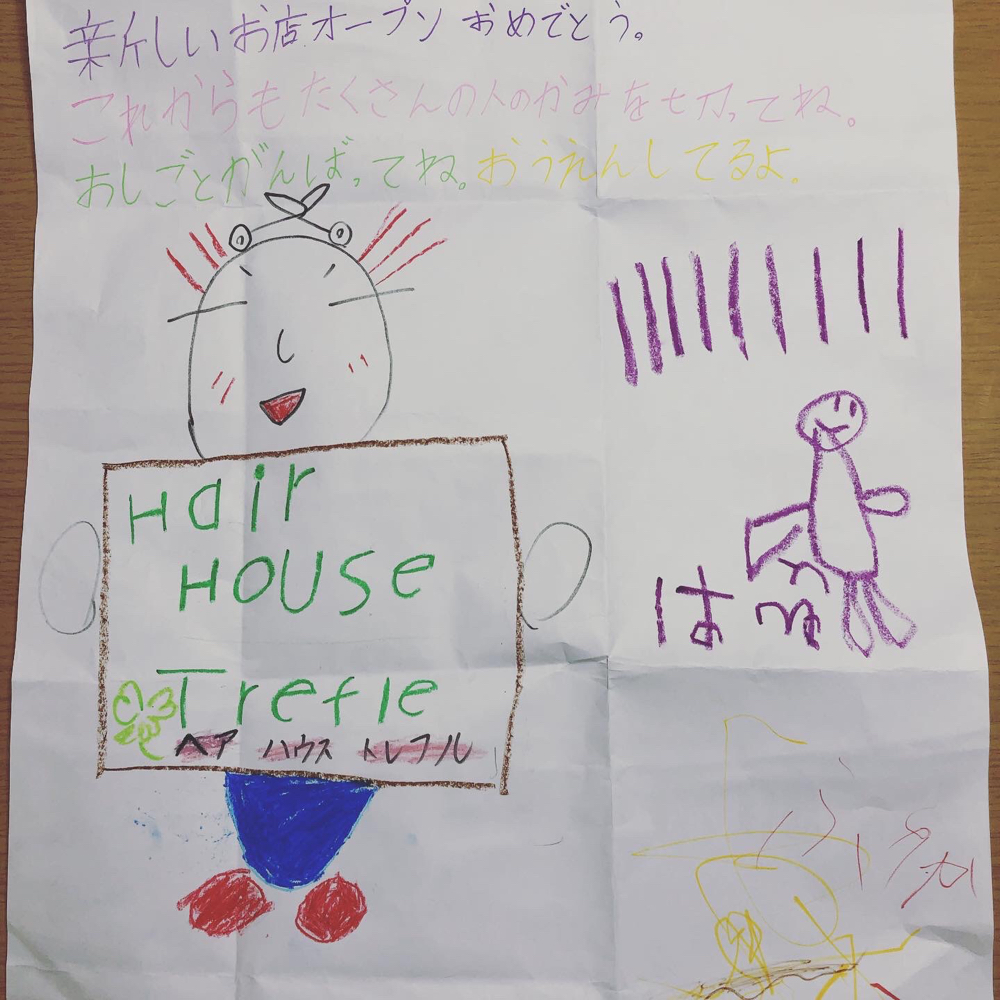 新しいお店オープン おめでとう。
これからもたくさんの人のかみを切ってね。
おしごとがんばってね。おうえんしてるよ。
Hair
House
Trefle
ヘア ハウス トレフル